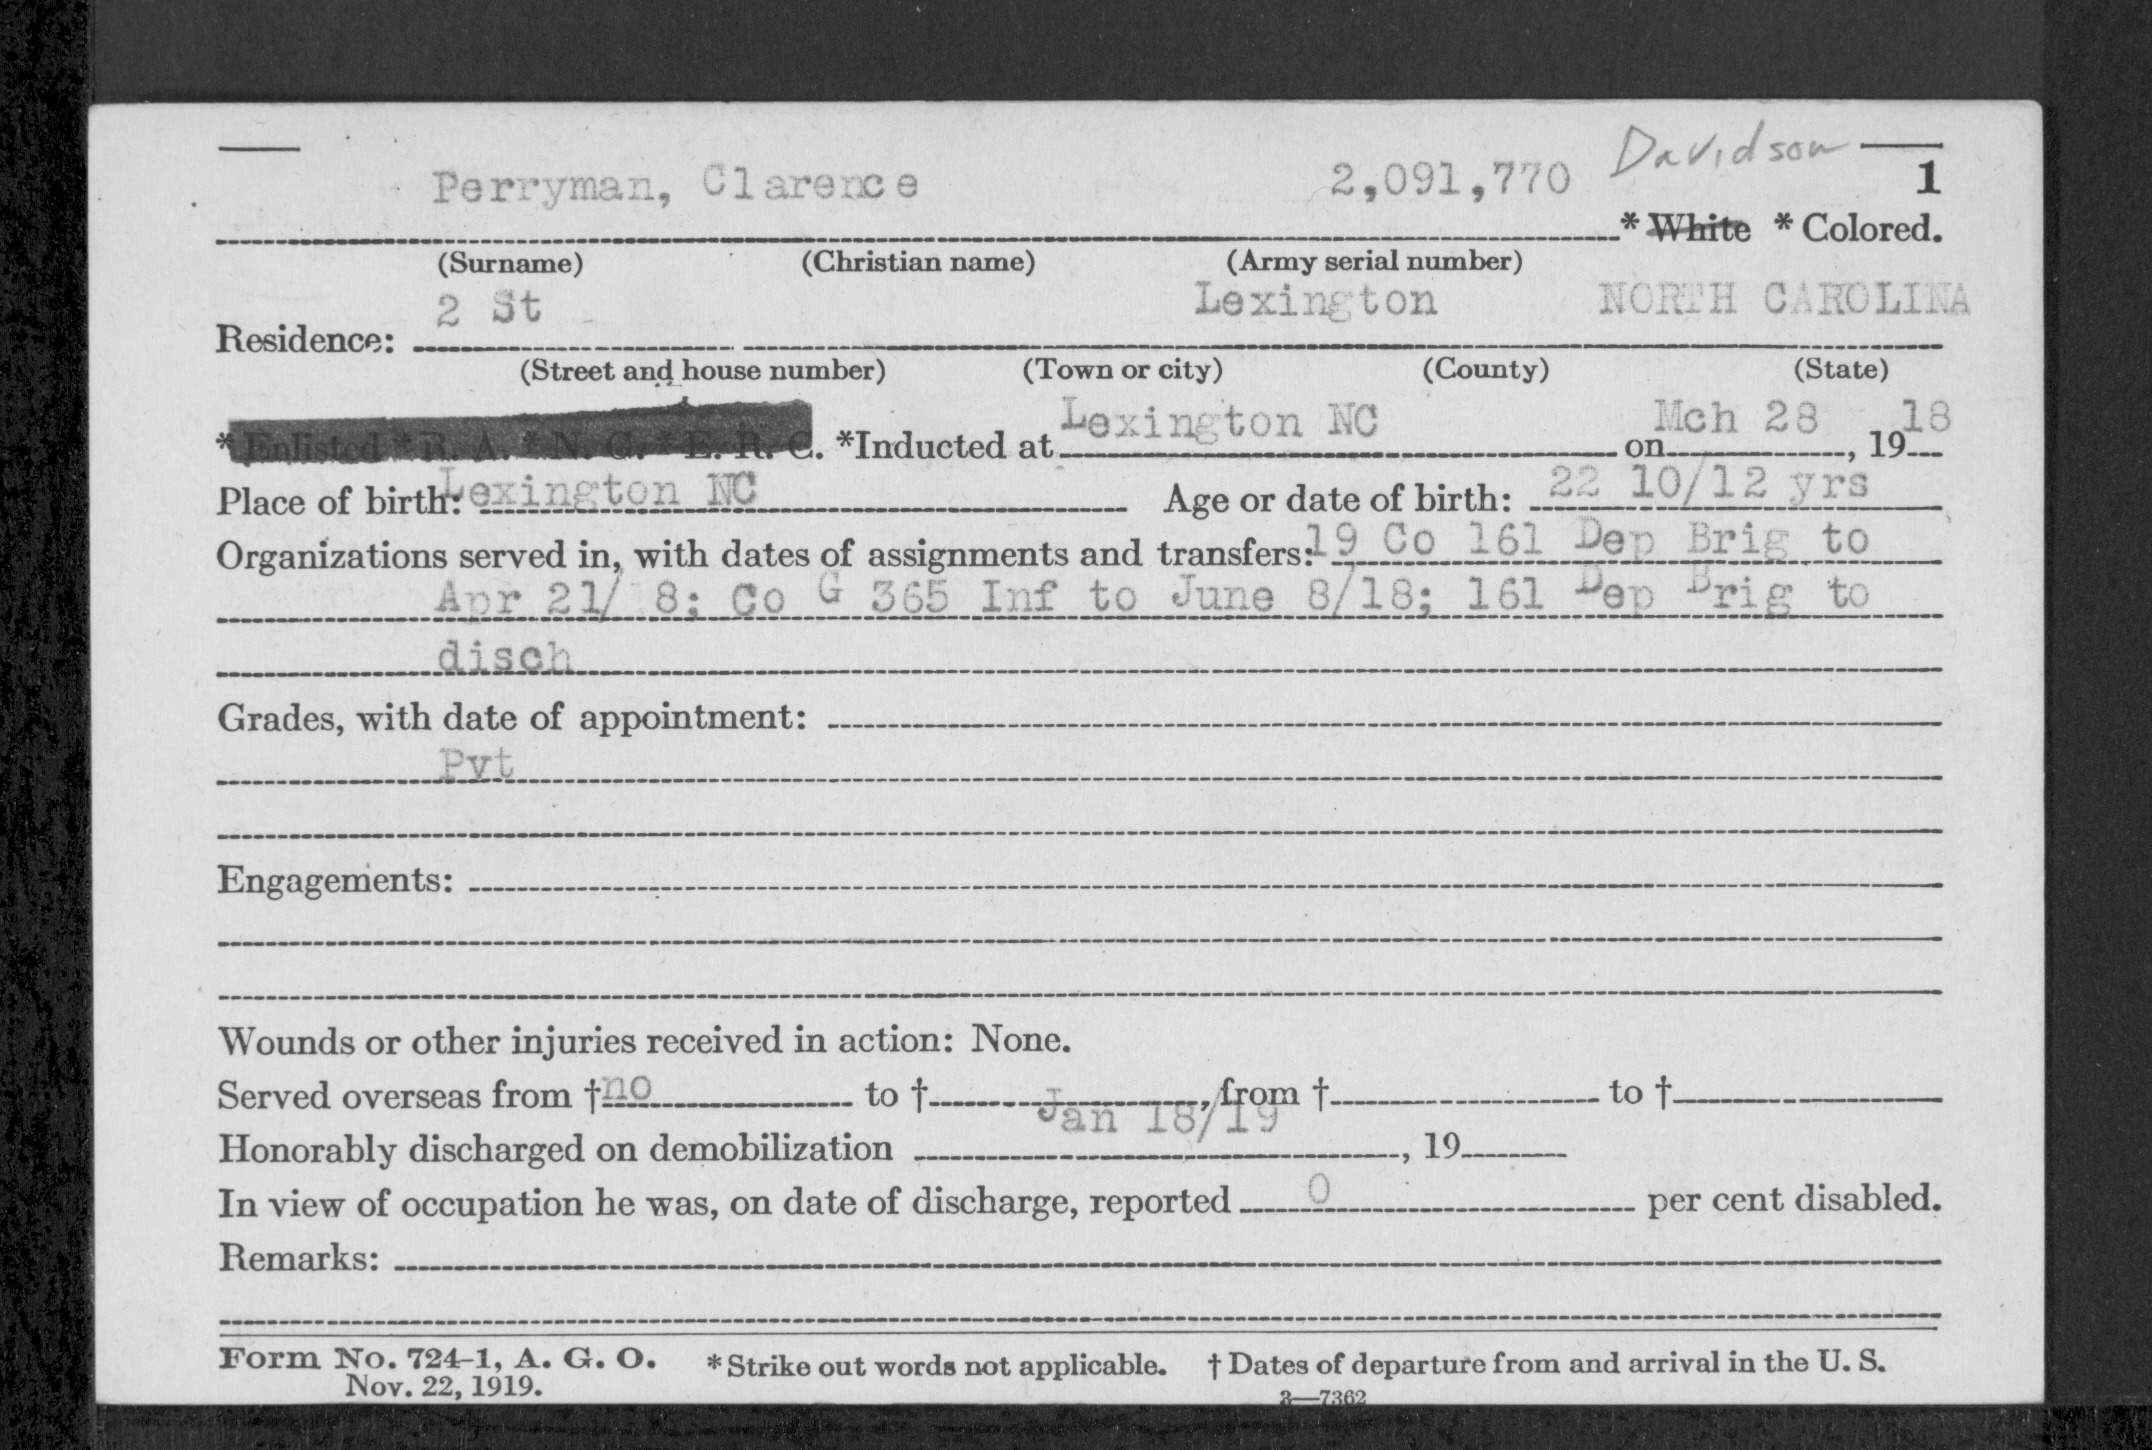 Davidson
Perryman, Clarence 2,091,770 1
* White * Colored.
(Surname) (Christian name) (Army serial number)
2 St Lexington NORTH CAROLINA
Residence:
(Street and house number) (Town or city) (County) (State)
* Enlisted * R. A. * N. G. * E. R. C. *Inducted at Lexington NC on Mch 28, 1918
Place of birth: Lexington NC Age or date of birth: 22 10/12 yrs
Organizations served in, with dates of assignments and transfers: 19 Co 161 Dep Brig to
Apr 21/ 8; Co G 365 Inf to June 8/18; 161 Dep Brig to
disch
Grades, with date of appointment:
Pvt
Engagements:
Wounds or other injuries received in action: None.
Served overseas from † no to † , from † to †
Honorably discharged on demobilization Jan 18/19 , 19
In view of occupation he was, on date of discharge, reported 0 per cent disabled.
Remarks:
Form No. 724-1, A. G. O. * Strike out words not applicable. † Dates of departure from and arrival in the U. S.
Nov. 22, 1919. 3—7362